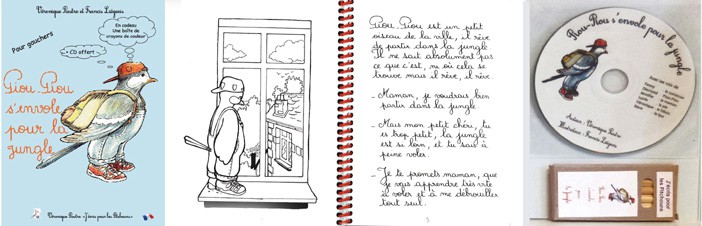 Véronique Poutre et Francis Laignais
Pour gauchers
En cadeau
Une boîte de
crayons de couleur
+ CD offert
Piou-Piou
s'envole
pour la
jungle
Piou-Piou est un petit
oiseau de la ville, il rêve
de partir dans la jungle.
Il ne sait absolument pas
ce que c'est, ni où cela se
trouve mais il rêve, il rêve
- Maman, je voudrais bien
partir dans la jungle.
- Mais mon petit chéri, tu
es trop petit, la jungle
est si loin, et tu sais à
peine voler.
- Je te promets maman, que
je vais apprendre très vite
à voler et à me débrouiller
tout seul.
5
Piou-Piou s'envole pour la jungle
Avec les voix de
J'écris pour
les Pitchouns